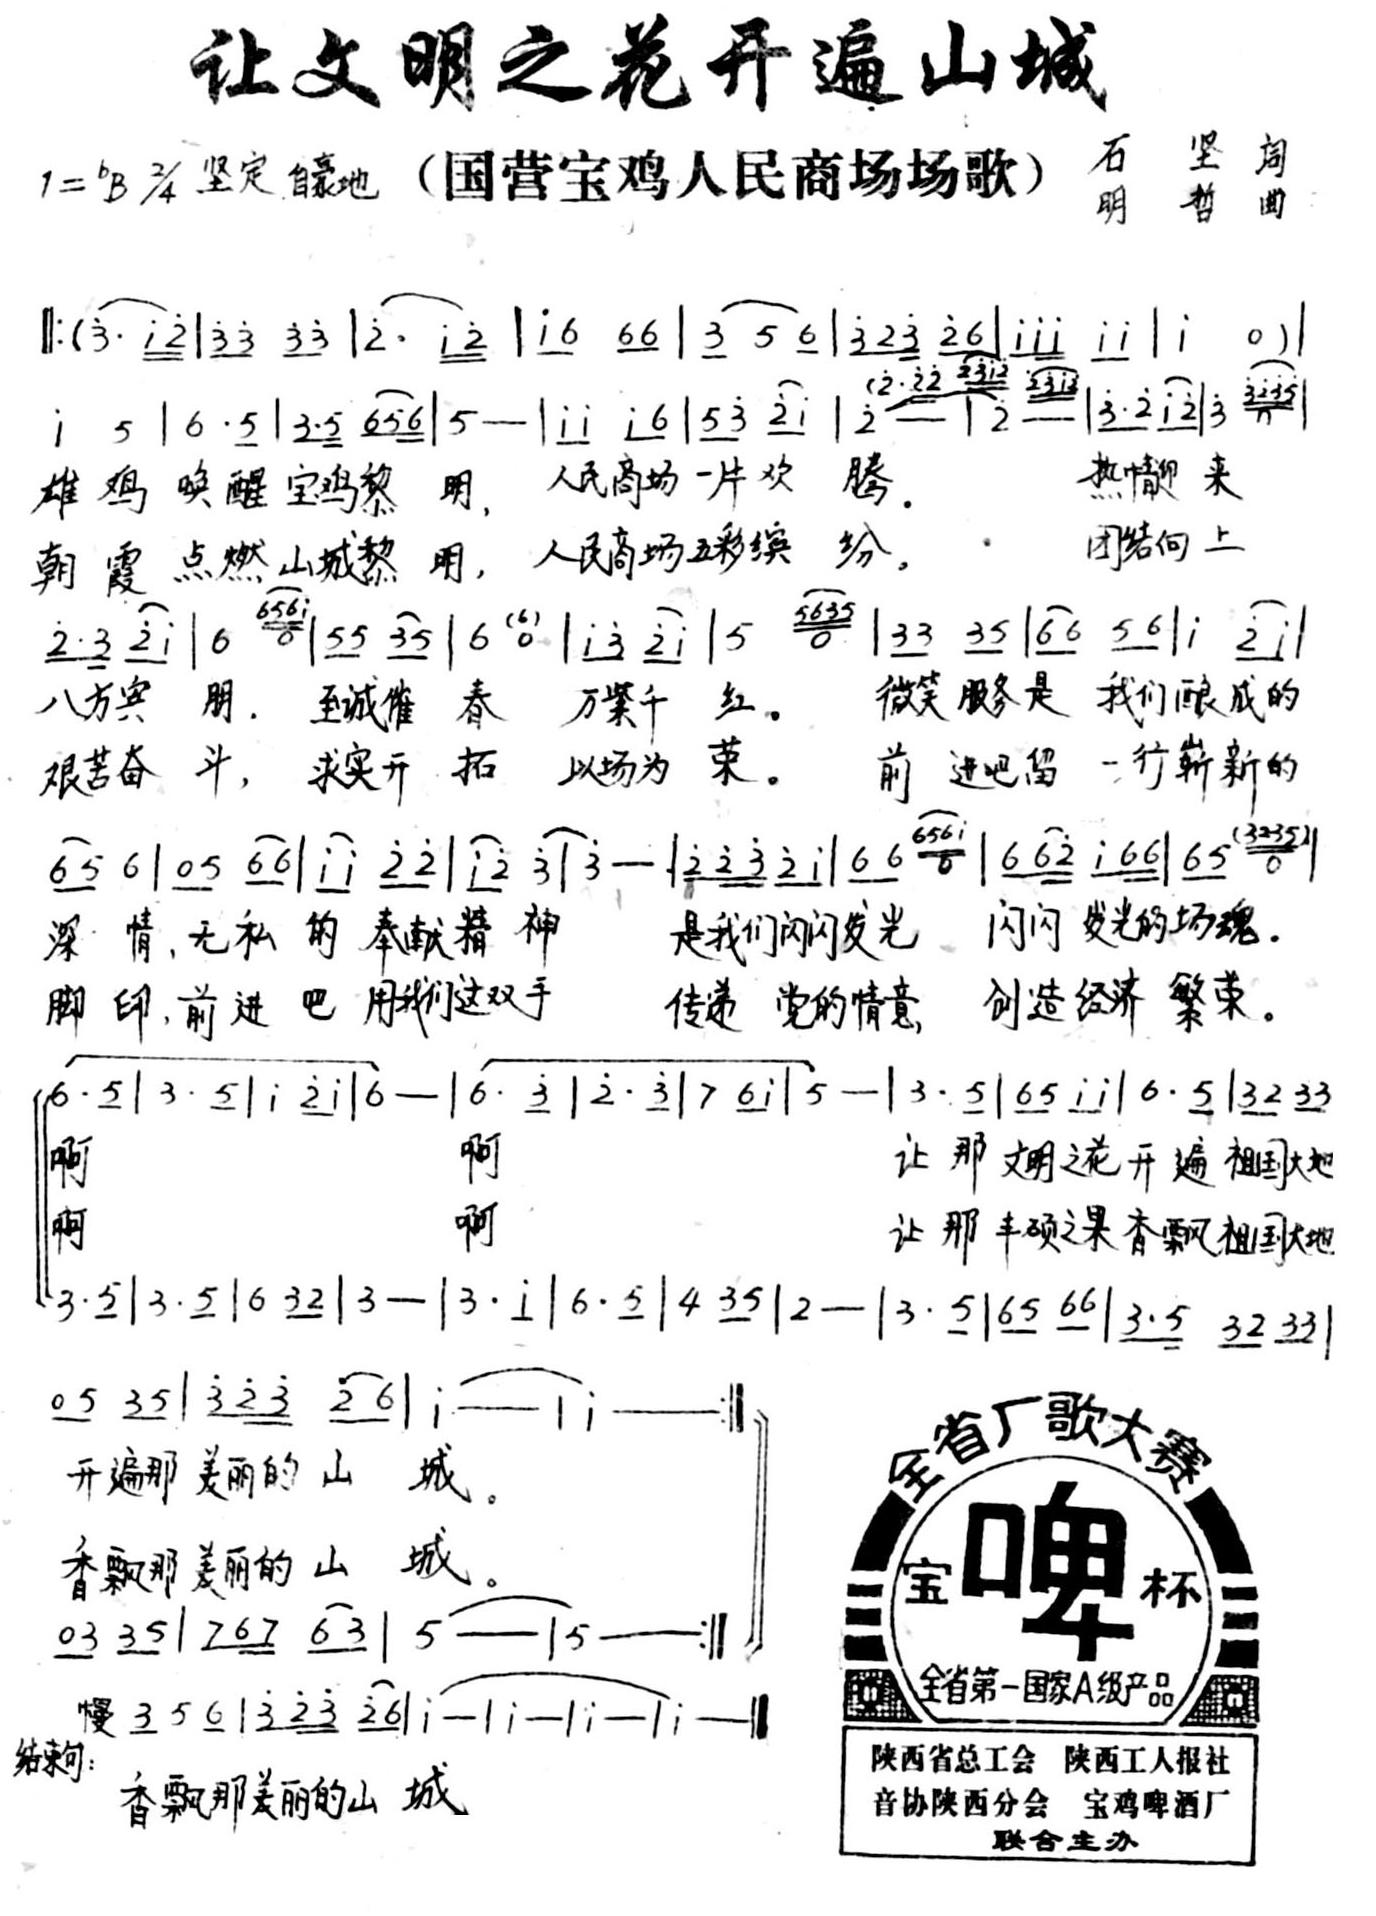 让文明之花开遍山城
1=bB 2/4 坚定 自豪地 (国营宝鸡人民商场场歌) 石 坚 词
明 哲 曲
‖:(3· i2|33 33|2· i2|i6 66|3 5 6|323 26|iii ii|i 0)|
(2·22 2312 2312 3235
i 5|6·5|3·5 656|5—|ii i6|53 2i|2—|2—|3·2 i2|3 0
雄鸡唤醒宝鸡黎明, 人民商场一片欢腾. 热情迎来
朝霞点燃山城黎明, 人民商场五彩缤纷。 团结向上
656i (6) 5635
2·3 2i|6 0|55 35|6 0|i3 2i|5 0|33 35|66 56|i 2i|
八方宾朋. 至诚催春 万紫千红。 微笑服务是 我们酿成的
艰苦奋斗, 求实开拓 以场为荣。 前进吧留一行崭新的
656i (3235)
65 6|05 66|ii 22|i2 3|3—|223 2i|66 0|662 i66|65 0|
深情,无私的奉献精神 是我们闪闪发光 闪闪发光的场魂.
脚印,前进吧用我们这双手 传递党的情意, 创造经济繁荣。
6·5|3·5|i 2i|6—|6·3|2·3|7 6i|5—|3·5|65 ii|6·5|32 33
啊 啊 让那文明之花开遍祖国大地
啊 啊 让那丰硕之果香飘祖国大地
3·5|3·5|6 32|3—|3·i|6·5|4 35|2—|3·5|65 66|3·5 32 33|
05 35|323 26|i—|i—:‖
开遍那美丽的山城。
香飘那美丽的山城。
03 35|767 63|5—|5—:‖
慢 3 5 6|323 26|i—|i—|i—|i—‖
结束句:
香飘那美丽的山城
全省厂歌大赛
宝啤杯
全省第一国家A级产品
陕西省总工会 陕西工人报社
音协陕西分会 宝鸡啤酒厂
联合主办